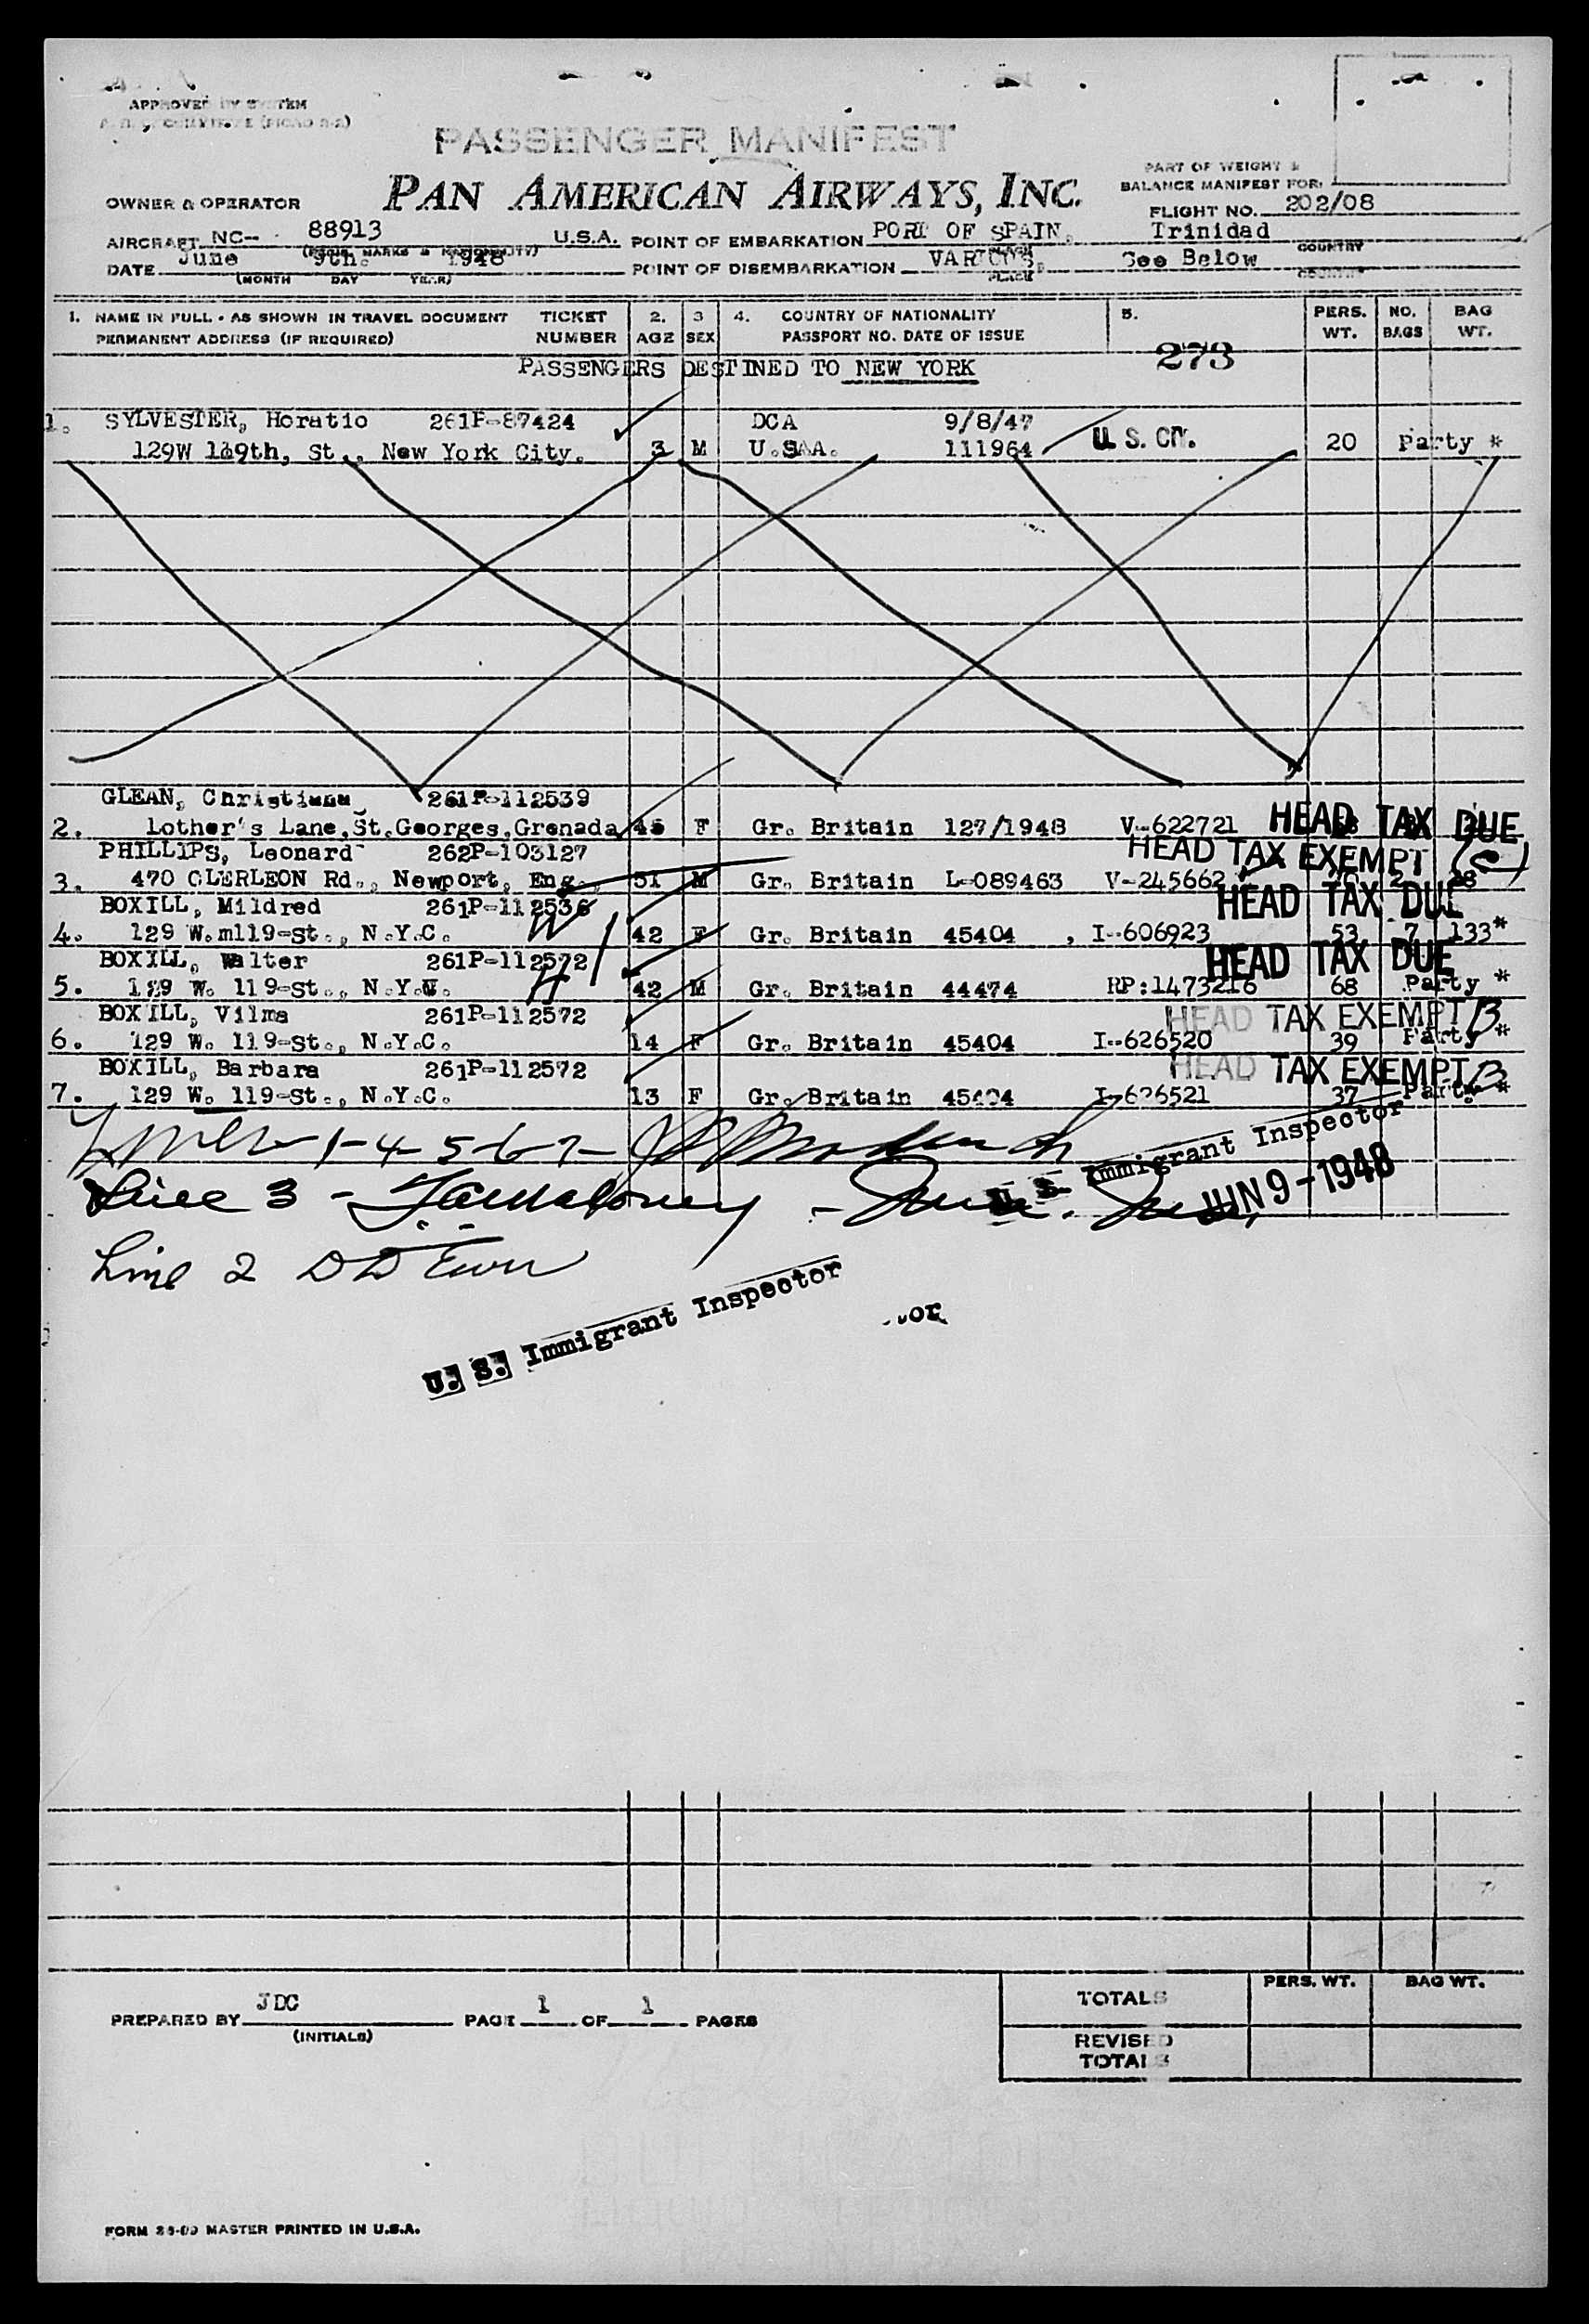 APPROVED BY SYSTEM
PASSENGER MANIFEST
PART OF WEIGHT &
BALANCE MANIFEST FOR:
OWNER & OPERATOR PAN AMERICAN AIRWAYS, INC.
FLIGHT NO. 202/08
AIRCRAFT NC-- 88913 U.S.A. POINT OF EMBARKATION PORT OF SPAIN, Trinidad
(REGIS. MARKS & NATIONALITY) PLACE COUNTRY
DATE June 9th. 1948 POINT OF DISEMBARKATION VARIOUS. See Below
(MONTH DAY YEAR) PLACE COUNTRY
1. NAME IN FULL - AS SHOWN IN TRAVEL DOCUMENT TICKET 2. 3 4. COUNTRY OF NATIONALITY 5. PERS. NO. BAG
PERMANENT ADDRESS (IF REQUIRED) NUMBER AGE SEX PASSPORT NO. DATE OF ISSUE WT. BAGS WT.
273
PASSENGERS DESTINED TO NEW YORK
1. SYLVESTER, Horatio 261P-87424 DCA 9/8/47
129W 119th, St., New York City. 3 M U.S.A. 111964 U. S. CIT. 20 Party *
GLEAN, Christiana 261P-112539
2. Lother's Lane, St.Georges, Grenada 45 F Gr. Britain 127/1948 V-622721 HEAD TAX DUE
PHILLIPS, Leonard 262P-103127 HEAD TAX EXEMPT (C)
3. 470 CLERLEON Rd., Newport, Eng. 51 M Gr. Britain L-089463 V-245662 76 2 28
BOXILL, Mildred 261P-112536 HEAD TAX DUE
4. 129 W.m119-st., N.Y.C. W 42 F Gr. Britain 45404 , I-606923 53 7 133*
BOXILL, Walter 261P-112572 HEAD TAX DUE
5. 129 W. 119-st., N.Y.C. H 42 M Gr. Britain 44474 RP:1473216 68 Party *
BOXILL, Vilma 261P-112572 HEAD TAX EXEMPT B
6. 129 W. 119-st., N.Y.C. 14 F Gr. Britain 45404 I-626520 39 Party *
BOXILL, Barbara 261P-112572 HEAD TAX EXEMPT B
7. 129 W. 119-st., N.Y.C. 13 F Gr. Britain 45404 I-626521 37 Party *
1-4-5-6-7-
U. S. Immigrant Inspector
Line 3 - JUN 9 - 1948
Line 2
U. S. Immigrant Inspector
or
PREPARED BY JDC PAGE 1 OF 1 PAGES
(INITIALS)
PERS. WT. BAG WT.
TOTALS
REVISED
TOTALS
FORM 26-09 MASTER PRINTED IN U.S.A.